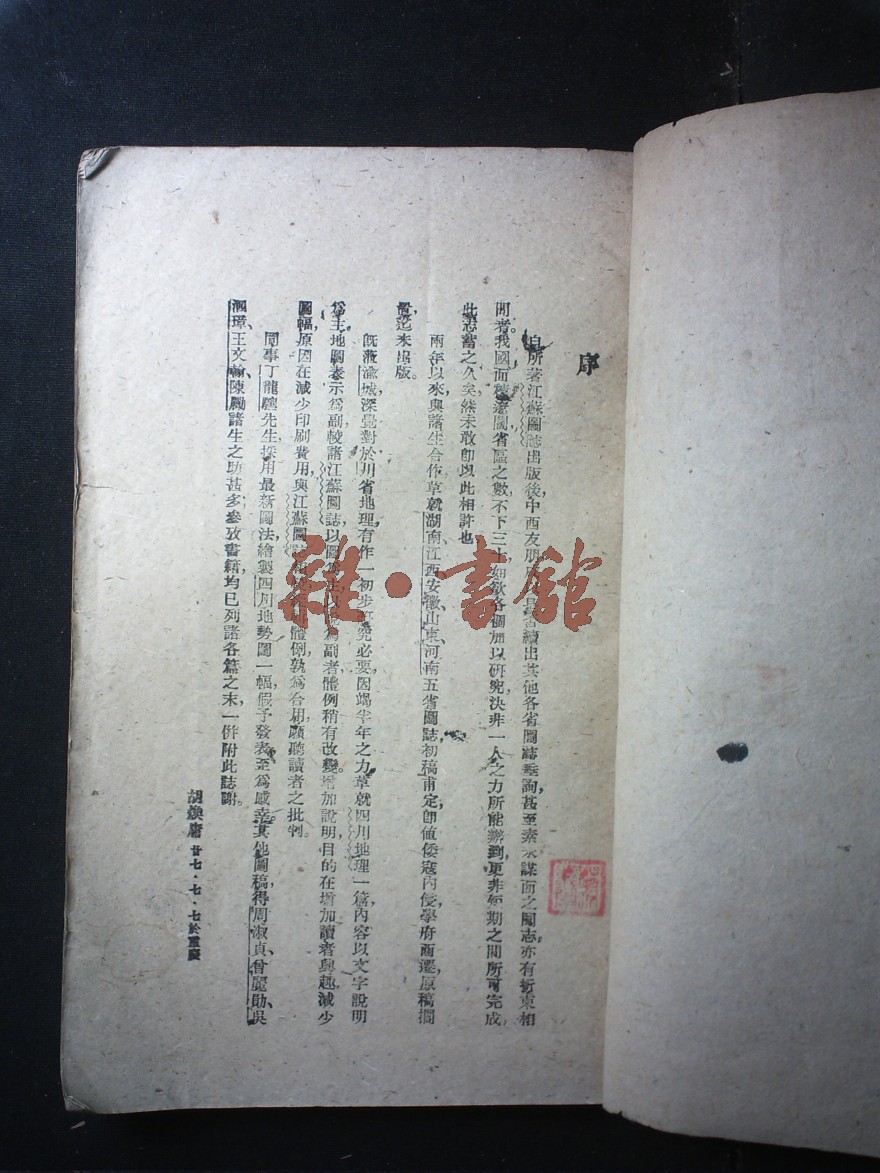 序
自所著江蘇圖誌出版後，中西友朋，續出其他各省圖誌垂詢，甚至素未謀面之同志，亦有折柬相
問者。我國面積遼闊，省區之數，不下三十，如欲各個加以研究，決非一人之力所能辦到，更非短期之間所可完成，
此志蓄之久矣，然未敢卽以此相許也。
兩年以來，與諸生合作，草就湖南、江西、安徽、山東、河南五省圖誌，初稿甫定，卽値倭寇內侵，學府西遷，原稿擱
置，迄未出版。
旣蒞渝城，深覺對於川省地理，有作一初步研究必要，因竭半年之力，草就四川地理一篇，內容以文字說明
爲主，地圖表示爲副，較諸江蘇圖誌以圖爲主，以文爲副者，體例稍有改變。增加說明，目的在增加讀者興趣，減少
圖幅，原因在減少印刷費用，與江蘇圖誌體例孰爲合用，願聽讀者之批判。
同事丁龍驤先生，採用最新圖法，繪製四川地勢圖一幅，假予發表，至爲感幸。其他圖稿，得周淑貞、曾麗勛、吳
璋、王文翰、陳勵諸生之助甚多，參攷書籍，均已列諸各篇之末，一倂附此誌謝。
胡煥庸 廿七・七・七於重慶
雜・書館